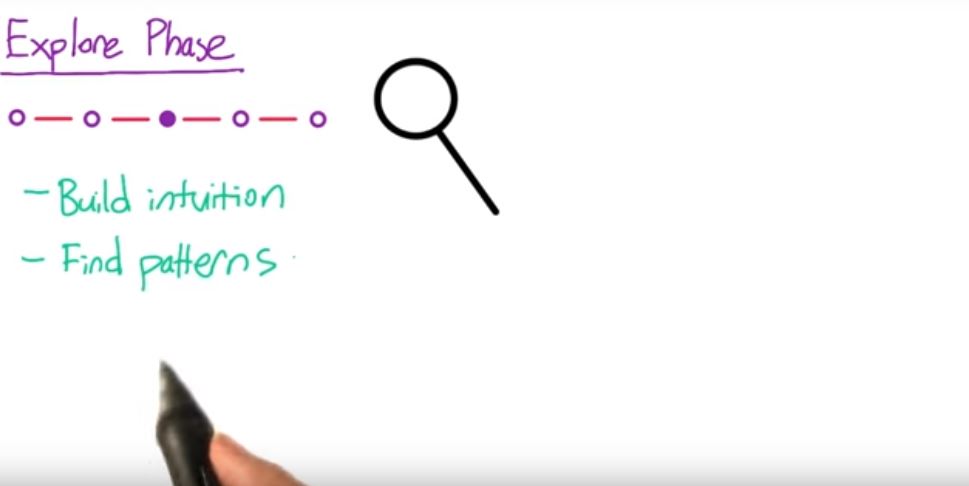 Explore Phase
- Build intuition
- Find patterns